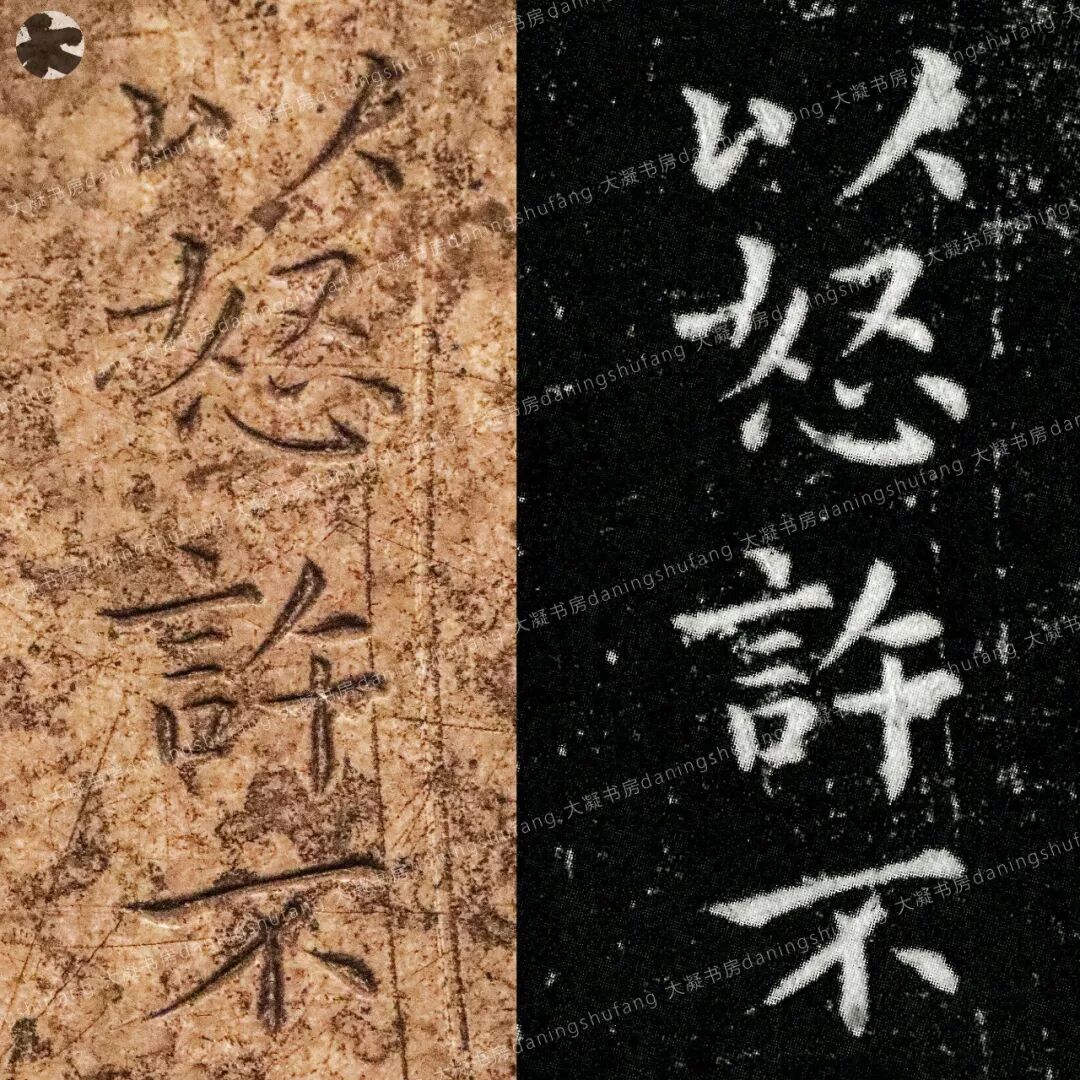 以怒許不
以怒許不
大凝书房daningshufang